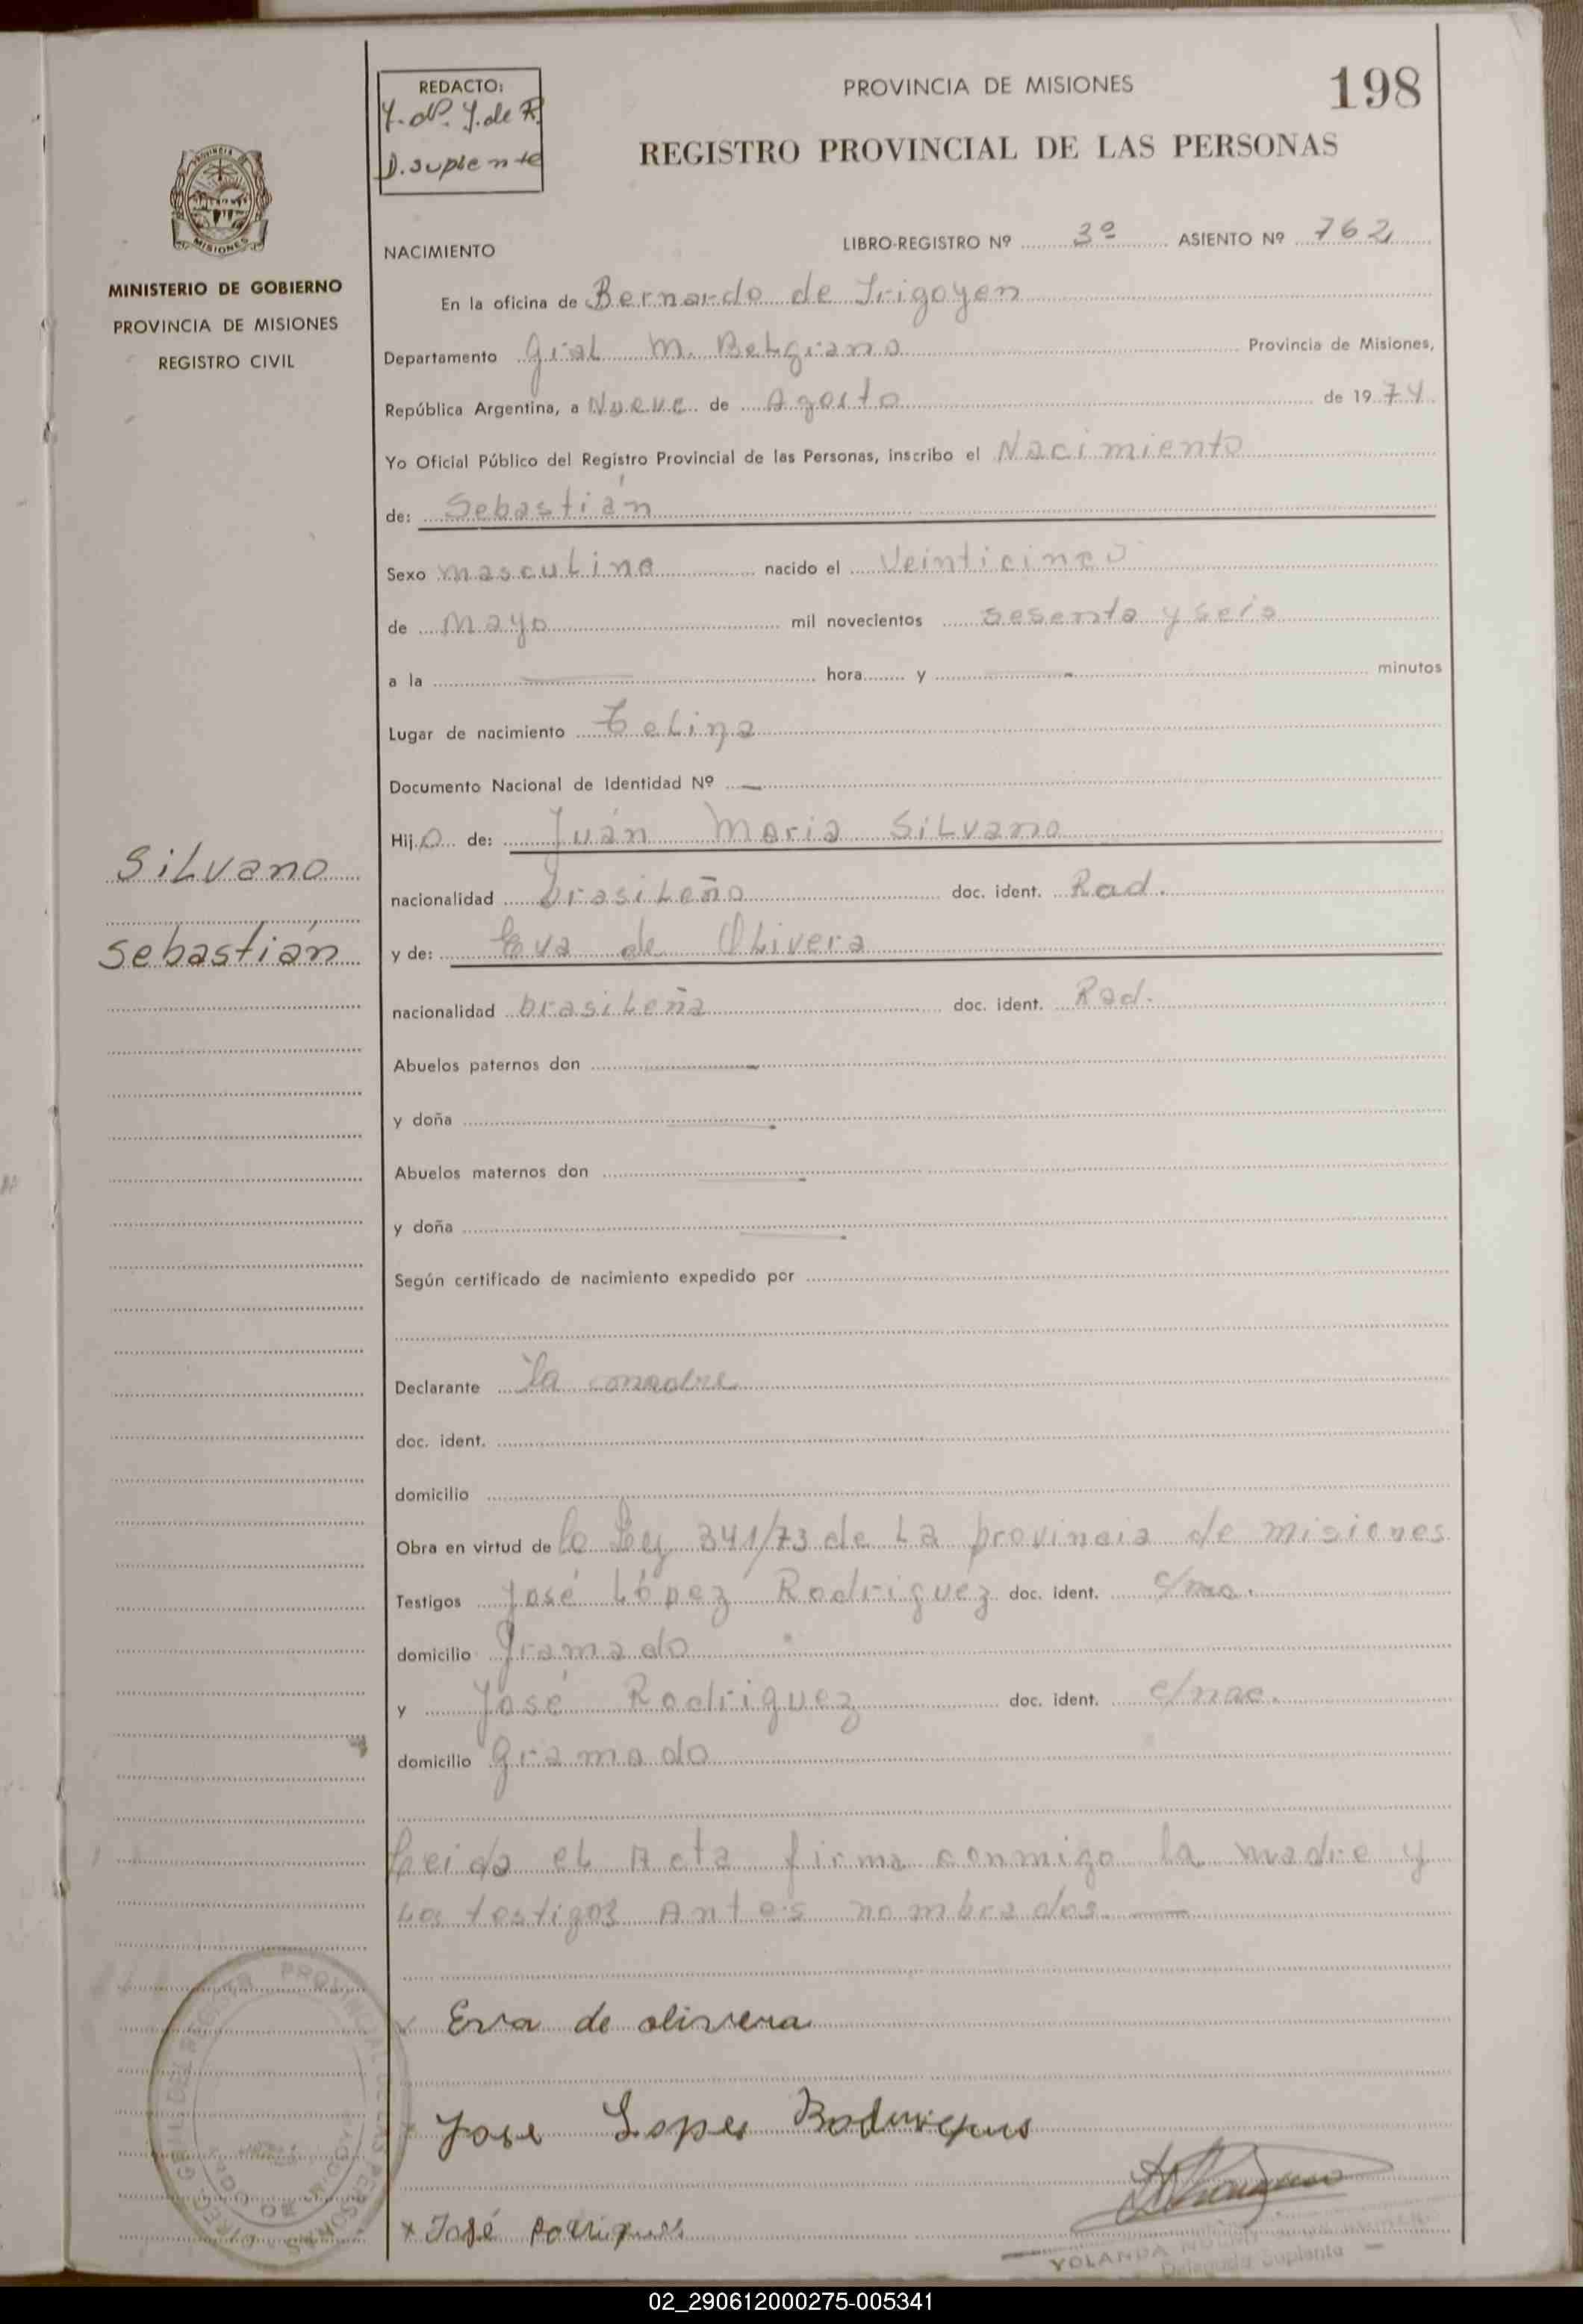 198
REDACTO:
D. suplente
PROVINCIA DE MISIONES
REGISTRO PROVINCIAL DE LAS PERSONAS
MISIONES
MINISTERIO DE GOBIERNO
PROVINCIA DE MISIONES
REGISTRO CIVIL
NACIMIENTO LIBRO-REGISTRO Nº 3º ASIENTO Nº 762
En la oficina de Bernardo de Irigoyen
Departamento Gral M. Belgrano Provincia de Misiones,
República Argentina, a Nueve de Agosto de 1974
Yo Oficial Público del Registro Provincial de las Personas, inscribo el Nacimiento
de: Sebastián
Sexo masculino nacido el Veinticinco
de Mayo mil novecientos sesenta y seis
a la hora y minutos
Lugar de nacimiento
Documento Nacional de Identidad Nº —
Hijo de: Juán Maria Silvano
Silvano
nacionalidad brasileño doc. ident. Rad.
Sebastián
y de: Eva de Olivera
nacionalidad brasileña doc. ident. Rad.
Abuelos paternos don
y doña
Abuelos maternos don
y doña
Según certificado de nacimiento expedido por
Declarante la
doc. ident.
domicilio
Obra en virtud de la Ley 341/73 de La provincia de misiones
Testigos José López Rodriguez doc. ident.
domicilio Gramado
y José Rodriguez doc. ident. c/nac.
domicilio Gramado
Leida el Acta firma conmigo la madre y
Los testigos Antes nombrados. —
Eva de olivera
Jose Lopes
x José
YOLANDA
Delegada Suplente
02_290612000275-005341